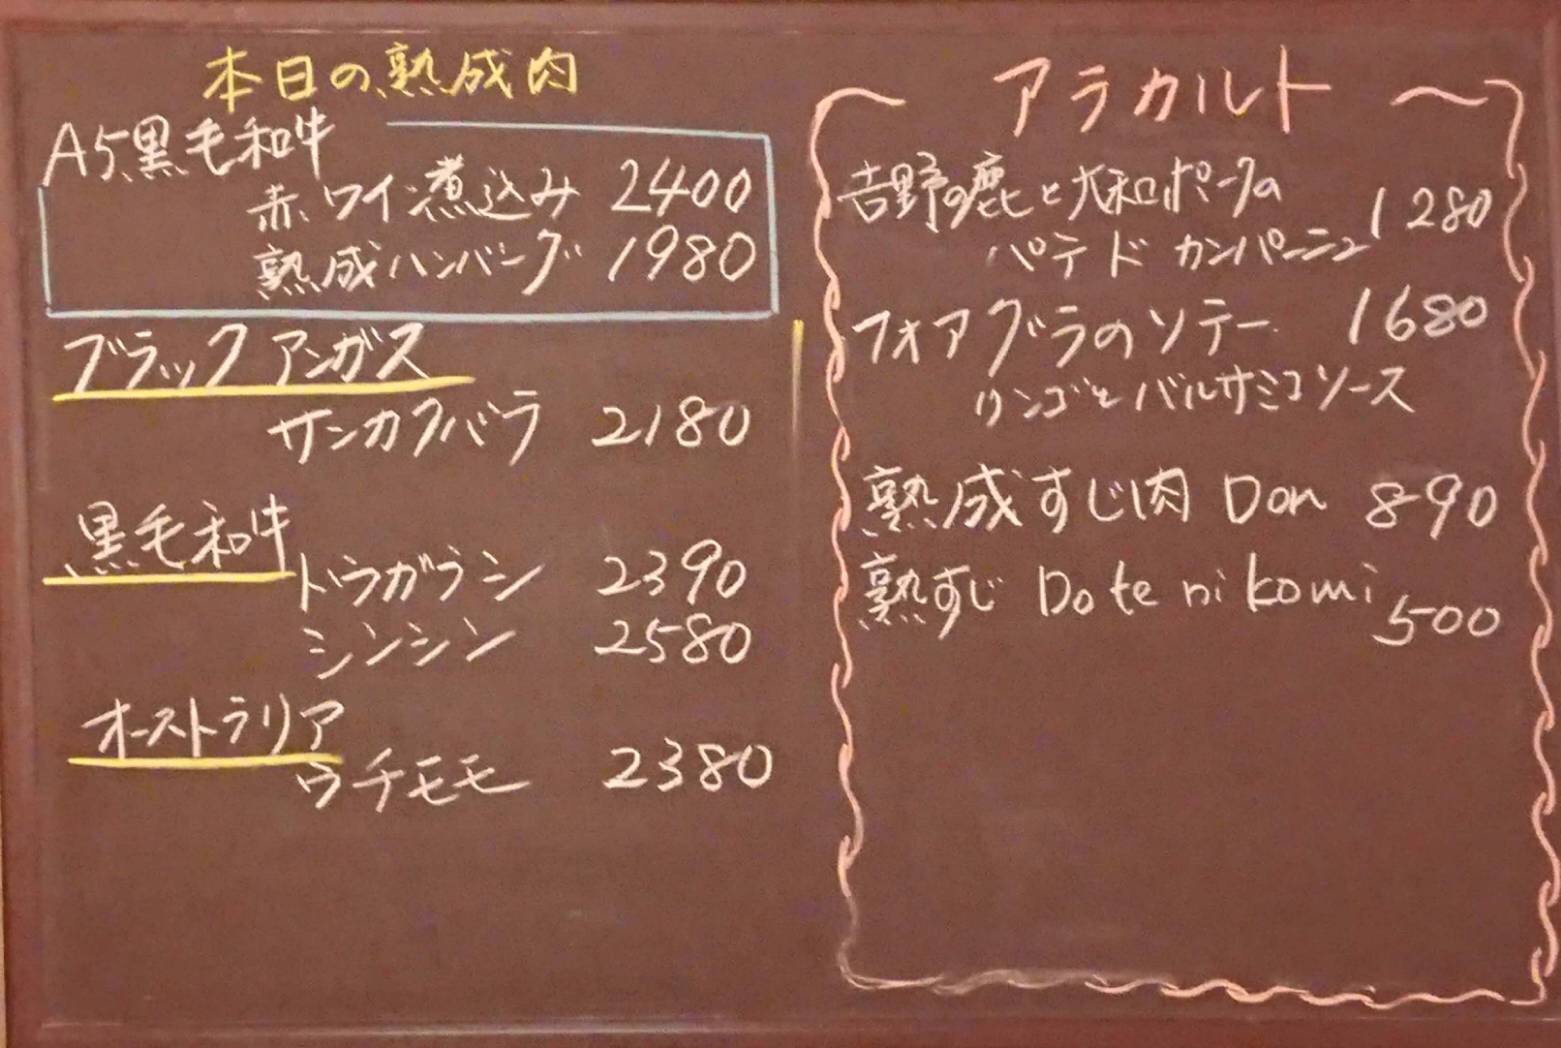 本日の熟成肉
A5黒毛和牛
赤ワイン煮込み 2400
熟成ハンバーグ 1980
ブラックアンガス
サンカクバラ 2180
黒毛和牛
トウガラシ 2390
シンシン 2580
オーストラリア
ウチモモ 2380
アラカルト
吉野の鹿と大和ポークの
パテ ド カンパーニュ 1280
フォアグラのソテー 1680
リンゴとバルサミコソース
熟成すじ肉 Don 890
熟すじ Dote nikomi
500